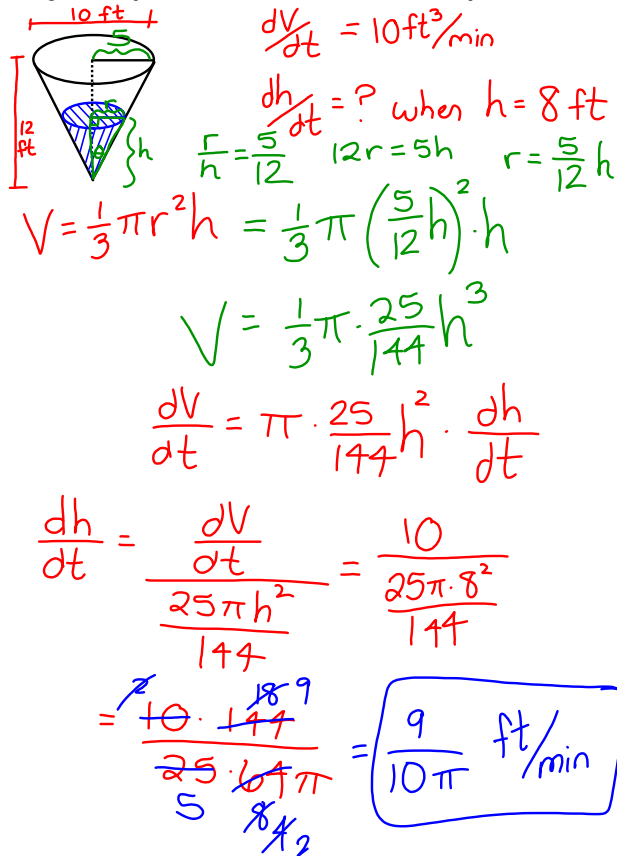 10 ft
5
dV/dt = 10 ft³/min
12 ft
r
h
θ
dh/dt = ? when h = 8 ft
r/h = 5/12 12r = 5h r = 5/12 h
V = 1/3 πr²h = 1/3 π (5/12 h)² · h
V = 1/3 π · 25/144 h³
dV/dt = π · 25/144 h² · dh/dt
dh/dt = (dV/dt)/(25πh²/144) = 10/(25π·8²/144)
2 18 9
= (10 · 144)/(25 · 64π) = 9/(10π) ft/min
5 8 4 2